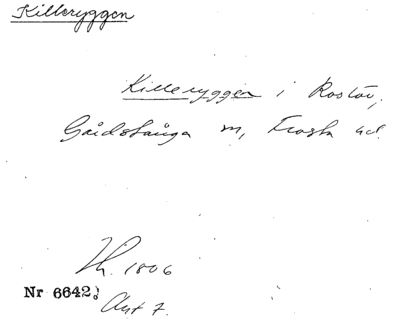 Killeryggen
Killeryggen i Rostöv,
Gårdstånga m, Frosta hd.
Th. 1806
Nr 6642.
Akt 7.